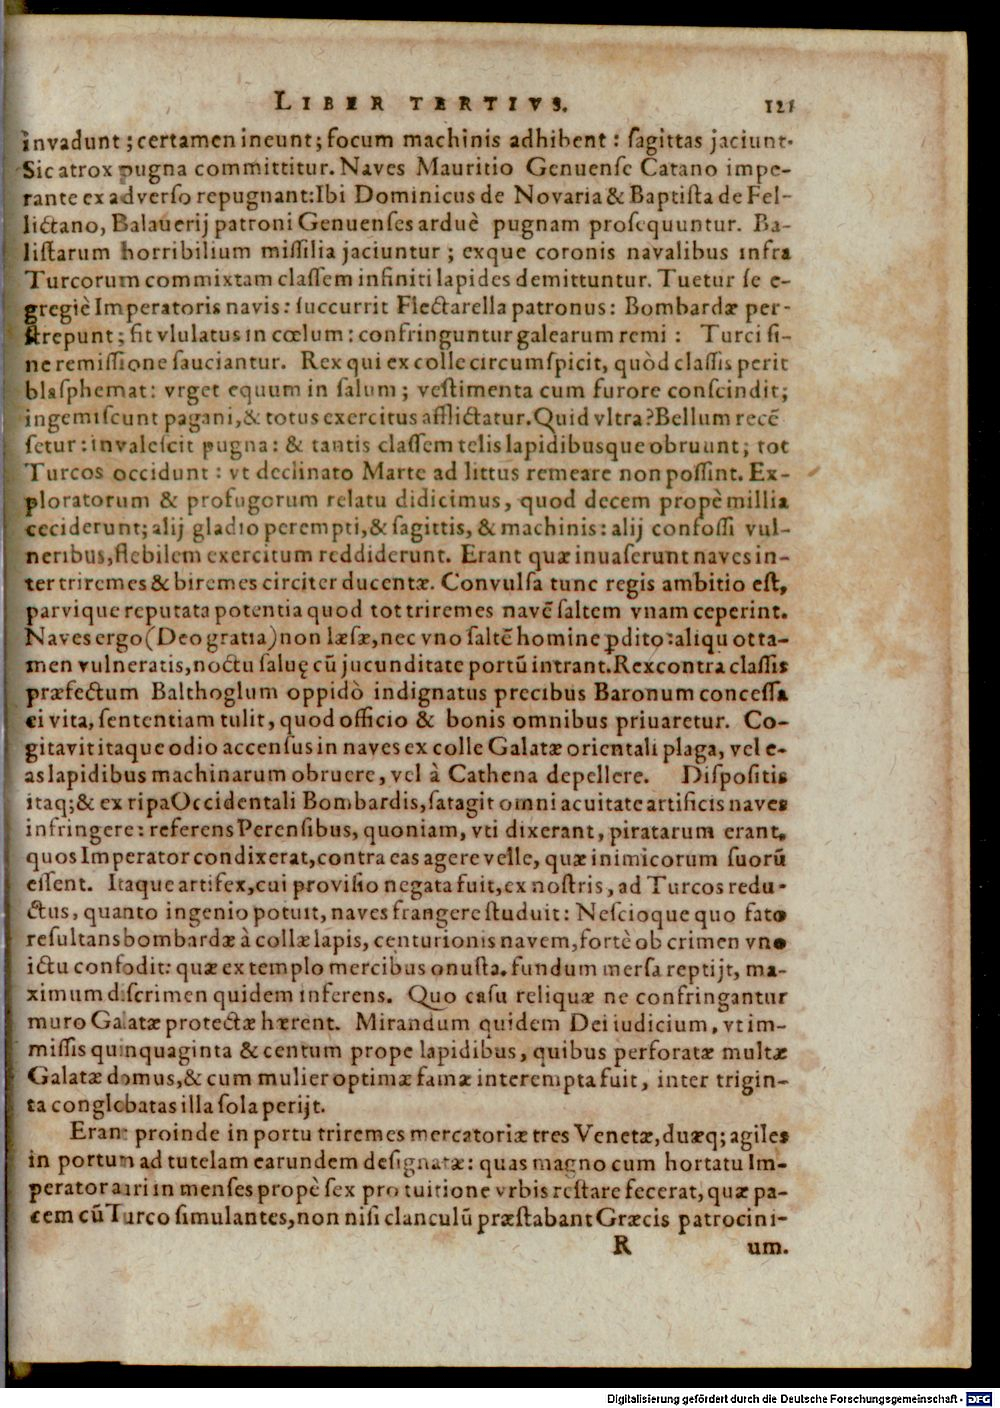 LIBER TERTIVS. 121
invadunt; certamen ineunt; focum machinis adhibent: ſagittas jaciunt.
Sic atrox pugna committitur. Naves Mauritio Genuenſe Catano impe-
rante ex adverſo repugnant: Ibi Dominicus de Novaria & Baptiſta de Fel-
lictano, Balauerij patroni Genuenſes arduè pugnam proſequuntur. Ba-
liſtarum horribilium miſſilia jaciuntur; exque coronis navalibus infra
Turcorum commixtam claſſem infiniti lapides demittuntur. Tuetur ſe e-
gregiè Imperatoris navis: ſuccurrit Flectarella patronus: Bombardæ per-
ſtrepunt; fit vlulatus in cœlum: confringuntur galearum remi: Turci ſi-
ne remiſſione ſauciantur. Rex qui ex colle circumſpicit, quòd claſſis perit
blaſphemat: vrget equum in ſalum; veſtimenta cum furore conſcindit;
ingemiſcunt pagani, & totus exercitus afflictatur. Quid vltra? Bellum recē
ſetur: invaleſcit pugna: & tantis claſſem telis lapidibusque obruunt; tot
Turcos occidunt: vt declinato Marte ad littus remeare non poſſint. Ex-
ploratorum & profugorum relatu didicimus, quod decem propè millia
ceciderunt; alij gladio perempti, & ſagittis, & machinis: alij confoſſi vul-
neribus, flebilem exercitum reddiderunt. Erant quæ inuaſerunt naves in-
ter triremes & biremes circiter ducentæ. Convulſa tunc regis ambitio eſt,
parvique reputata potentia quod tot triremes navē ſaltem vnam ceperint.
Naves ergo (Deo gratia) non læſæ, nec vno ſaltē homine ꝑdito: aliquotta-
men vulneratis, noctu ſaluę cū jucunditate portū intrant. Rex contra claſſis
præfectum Balthoglum oppidò indignatus precibus Baronum conceſſa
ei vita, ſententiam tulit, quod officio & bonis omnibus priuaretur. Co-
gitavit itaque odio accenſus in naves ex colle Galatæ orientali plaga, vel e-
as lapidibus machinarum obruere, vel à Cathena depellere. Diſpoſitis
itaq; & ex ripa Occidentali Bombardis, ſatagit omni acuitate artificis naves
infringere: referens Perenſibus, quoniam, vti dixerant, piratarum erant,
quos Imperator condixerat, contra eas agere velle, quæ inimicorum ſuorū
eſſent. Itaque artifex, cui proviſio negata fuit, ex noſtris, ad Turcos redu-
ctus, quanto ingenio potuit, naves frangere ſtuduit: Neſcioque quo fato
reſultans bombardæ à collæ lapis, centurionis navem, fortè ob crimen vno
ictu confodit: quæ extemplo mercibus onuſta, fundum merſa reptijt, ma-
ximum diſcrimen quidem inferens. Quo caſu reliquæ ne confringantur
muro Galatæ protectæ hærent. Mirandum quidem Dei iudicium, vt im-
miſſis quinquaginta & centum prope lapidibus, quibus perforatæ multæ
Galatæ domus, & cum mulier optimæ famæ interempta fuit, inter trigin-
ta conglobatas illa ſola perijt.
Erant proinde in portu triremes mercatoriæ tres Venetæ, duæq; agiles
in portum ad tutelam earundem deſignatæ: quas magno cum hortatu Im-
perator anri in menſes propè ſex pro tuitione vrbis reſtare fecerat, quæ pa-
cem cū Turco ſimulantes, non niſi clanculū præſtabant Græcis patrocini-
R um.
Digitalisierung gefördert durch die Deutsche Forschungsgemeinschaft - DFG